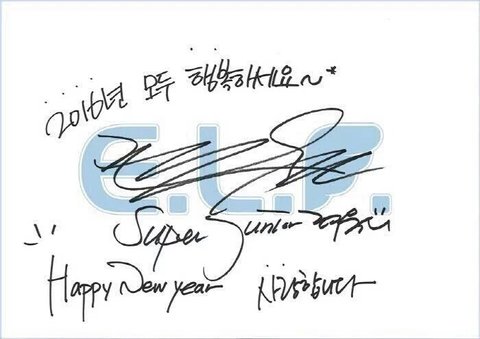 2016년 모두 행복하세요~*
E.L.F.
Super Junior 려욱
Happy New year 사랑합니다